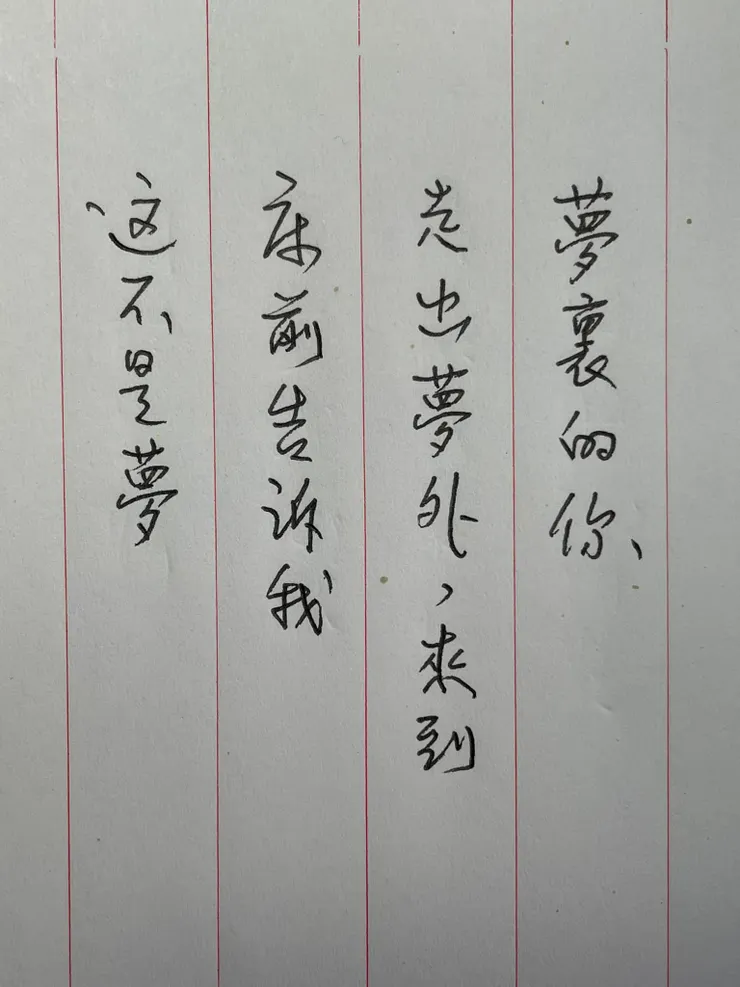 夢裏的你、
走出夢外，來到
床前告诉我
这不是夢